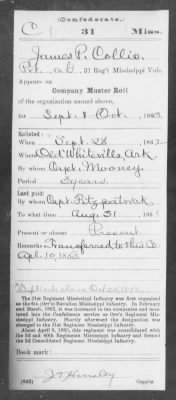 (Confederate.)
C 31 Miss.
James P. Collis,
Pvt., Co. C, 31 Reg't Mississippi Vols.
Appears on
Company Muster Roll
of the organization named above,
for Sept. & Oct., 1863.
Enlisted:
When Sept. 28, 1862.
Where Old Whiteville, Ark.
By whom Capt. Mooney
Period 3 years
Last paid:
By whom Capt. Fitzpatrick
To what time Aug. 31, 1863.
Present or absent Present
Remarks: Transferred to this Co.
Apl. 10, 1863.
The 31st Regiment Mississippi Infantry was first organized
as the 6th (Orr's) Battalion Mississippi Infantry. In February
and March, 1862, it was increased to ten companies and mus-
tered into the Confederate service as Orr's Regiment Mis-
sissippi Infantry. Shortly afterward the designation was
changed to the 31st Regiment Mississippi Infantry.
About April 9, 1865, this regiment was consolidated with
the 3d and 40th Regiments Mississippi Infantry and formed
the 3d Consolidated Regiment Mississippi Infantry.
Book mark:
(642)
Copyist.